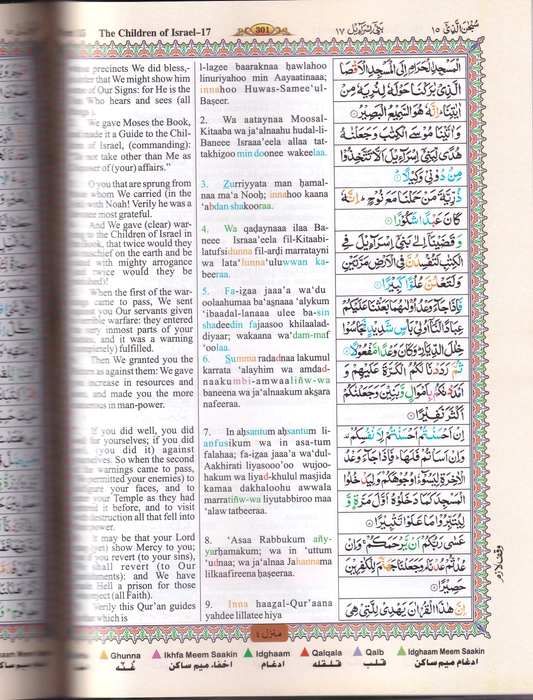 The Children of Israel–17
301
precincts We did bless,-
that We might show him
of Our Signs: for He is the
Who hears and sees (all
We gave Moses the Book,
made it a Guide to the Chil-
of Israel, (commanding):
not take other than Me as
of (your) affairs."
O you that are sprung from
whom We carried (in the
with Noah! Verily he was a
most grateful.
And We gave (clear) war-
the Children of Israel in
that twice would they
chief on the earth and be
with mighty arrogance
twice would they be
When the first of the war-
came to pass, We sent
you Our servants given
warfare: they entered
very inmost parts of your
and it was a warning
fulfilled.
Then We granted you the
as against them: We gave
increase in resources and
and made you the more
in man-power.
If you did well, you did
for yourselves; if you did
(you did it) against
So when the second
warnings came to pass,
permitted your enemies) to
your faces, and to
your Temple as they had
it before, and to visit
destruction all that fell into
power.
It may be that your Lord
(yet) show Mercy to you;
you revert (to your sins),
shall revert (to Our
and We have
Hell a prison for those
reject (all Faith).
Verily this Qur'an guides
which is
l-lazee baaraknaa ḥawlahoo
linuriyahoo min Aayaatinaaa;
innahoo Huwas-Samee'ul-
Baṣeer.
2. Wa aataynaa Moosal-
Kitaaba wa ja'alnaahu hudal-li-
Baneee Israaa'eela allaa tat-
takhizoo min doonee wakeelaa.
3. Zurriyyata man ḥamal-
naa ma'a Nooḥ; innahoo kaana
'abdan shakooraa.
4. Wa qaḍaynaaa ilaa Ba-
neee Israaa'eela fil-Kitaabi-
latufsidunna fil-arḍi marratayni
wa lata'lunna'uluwwan ka-
beeraa.
5. Fa-iẓaa jaaa'a wa'du
oolaahumaa ba'aṣnaaa 'alykum
'ibaadal-lanaaa ulee ba-sin
shadeedin fajaasoo khilaalad-
diyaar; wakaana wa'dam-maf
'oolaa.
6. Summa radadnaa lakumul
karrata 'alayhim wa amdad-
naakumbi-amwaaliñw-wa
baneena wa ja'alnaakum akṣara
nafeeraa.
7. In aḥsantum aḥsantum li-
anfusikum wa in asa-tum
falahaa; fa-iẓaa jaaa'a wa'dul-
Aakhirati liyasooo'oo wujoo-
hakum wa liyad-khulul masjida
kamaa dakhaloohu awwala
marratiñw-wa liyutabbiroo maa
'alaw tatbeeraa.
8. 'Asaa Rabbukum añy-
yarḥamakum; wa in 'uttum
'udnaa; wa ja'alnaa Jahannama
lilkaafireena ḥaṣeeraa.
9. Inna haazal-Qur'aana
yahdee lillatee hiya
بنی اسرآءیل ۱۷
سبحن الذی ۱۵
الْمَسْجِدِ الْحَرَامِ اِلَى الْمَسْجِدِ الْاَقْصَا
الَّذِيْ بٰرَكْنَا حَوْلَهٗ لِنُرِيَهٗ مِنْ
اٰيٰتِنَا ؕ اِنَّهٗ هُوَ السَّمِيْعُ الْبَصِيْرُ ①
وَاٰتَيْنَا مُوْسَى الْكِتٰبَ وَجَعَلْنٰهُ
هُدًى لِّبَنِيْۤ اِسْرَآءِيْلَ اَلَّا تَتَّخِذُوْا
مِنْ دُوْنِيْ وَكِيْلًا ②
ذُرِّيَّةَ مَنْ حَمَلْنَا مَعَ نُوْحٍ ؕ اِنَّهٗ
كَانَ عَبْدًا شَكُوْرًا ③
وَقَضَيْنَاۤ اِلٰى بَنِيْۤ اِسْرَآءِيْلَ فِي
الْكِتٰبِ لَتُفْسِدُنَّ فِي الْاَرْضِ مَرَّتَيْنِ
وَلَتَعْلُنَّ عُلُوًّا كَبِيْرًا ④
فَاِذَا جَآءَ وَعْدُ اُوْلٰىهُمَا بَعَثْنَا عَلَيْكُمْ
عِبَادًا لَّنَاۤ اُولِيْ بَاْسٍ شَدِيْدٍ فَجَاسُوْا
خِلٰلَ الدِّيَارِ ؕ وَكَانَ وَعْدًا مَّفْعُوْلًا ⑤
ثُمَّ رَدَدْنَا لَكُمُ الْكَرَّةَ عَلَيْهِمْ وَ
اَمْدَدْنٰكُمْ بِاَمْوَالٍ وَّبَنِيْنَ وَجَعَلْنٰكُمْ
اَكْثَرَ نَفِيْرًا ⑥
اِنْ اَحْسَنْتُمْ اَحْسَنْتُمْ لِاَنْفُسِكُمْ ۫
وَاِنْ اَسَاْتُمْ فَلَهَا ؕ فَاِذَا جَآءَ وَعْدُ
الْاٰخِرَةِ لِيَسُوْٓءٗا وُجُوْهَكُمْ وَلِيَدْخُلُوا
الْمَسْجِدَ كَمَا دَخَلُوْهُ اَوَّلَ مَرَّةٍ وَّ
لِيُتَبِّرُوْا مَا عَلَوْا تَتْبِيْرًا ⑦
عَسٰى رَبُّكُمْ اَنْ يَّرْحَمَكُمْ ۚ وَاِنْ
عُدْتُّمْ عُدْنَا ۘ وَجَعَلْنَا جَهَنَّمَ لِلْكٰفِرِيْنَ
حَصِيْرًا ⑧
اِنَّ هٰذَا الْقُرْاٰنَ يَهْدِيْ لِلَّتِيْ هِيَ
وقف لازم
منزل ٤
Ghunna
Ikhfa Meem Saakin
Idghaam
Qalqala
Qalb
Idghaam Meem Saakin
غُنّه
اخفاء میم ساکن
ادغام
قلقله
قلب
ادغام میم ساکن